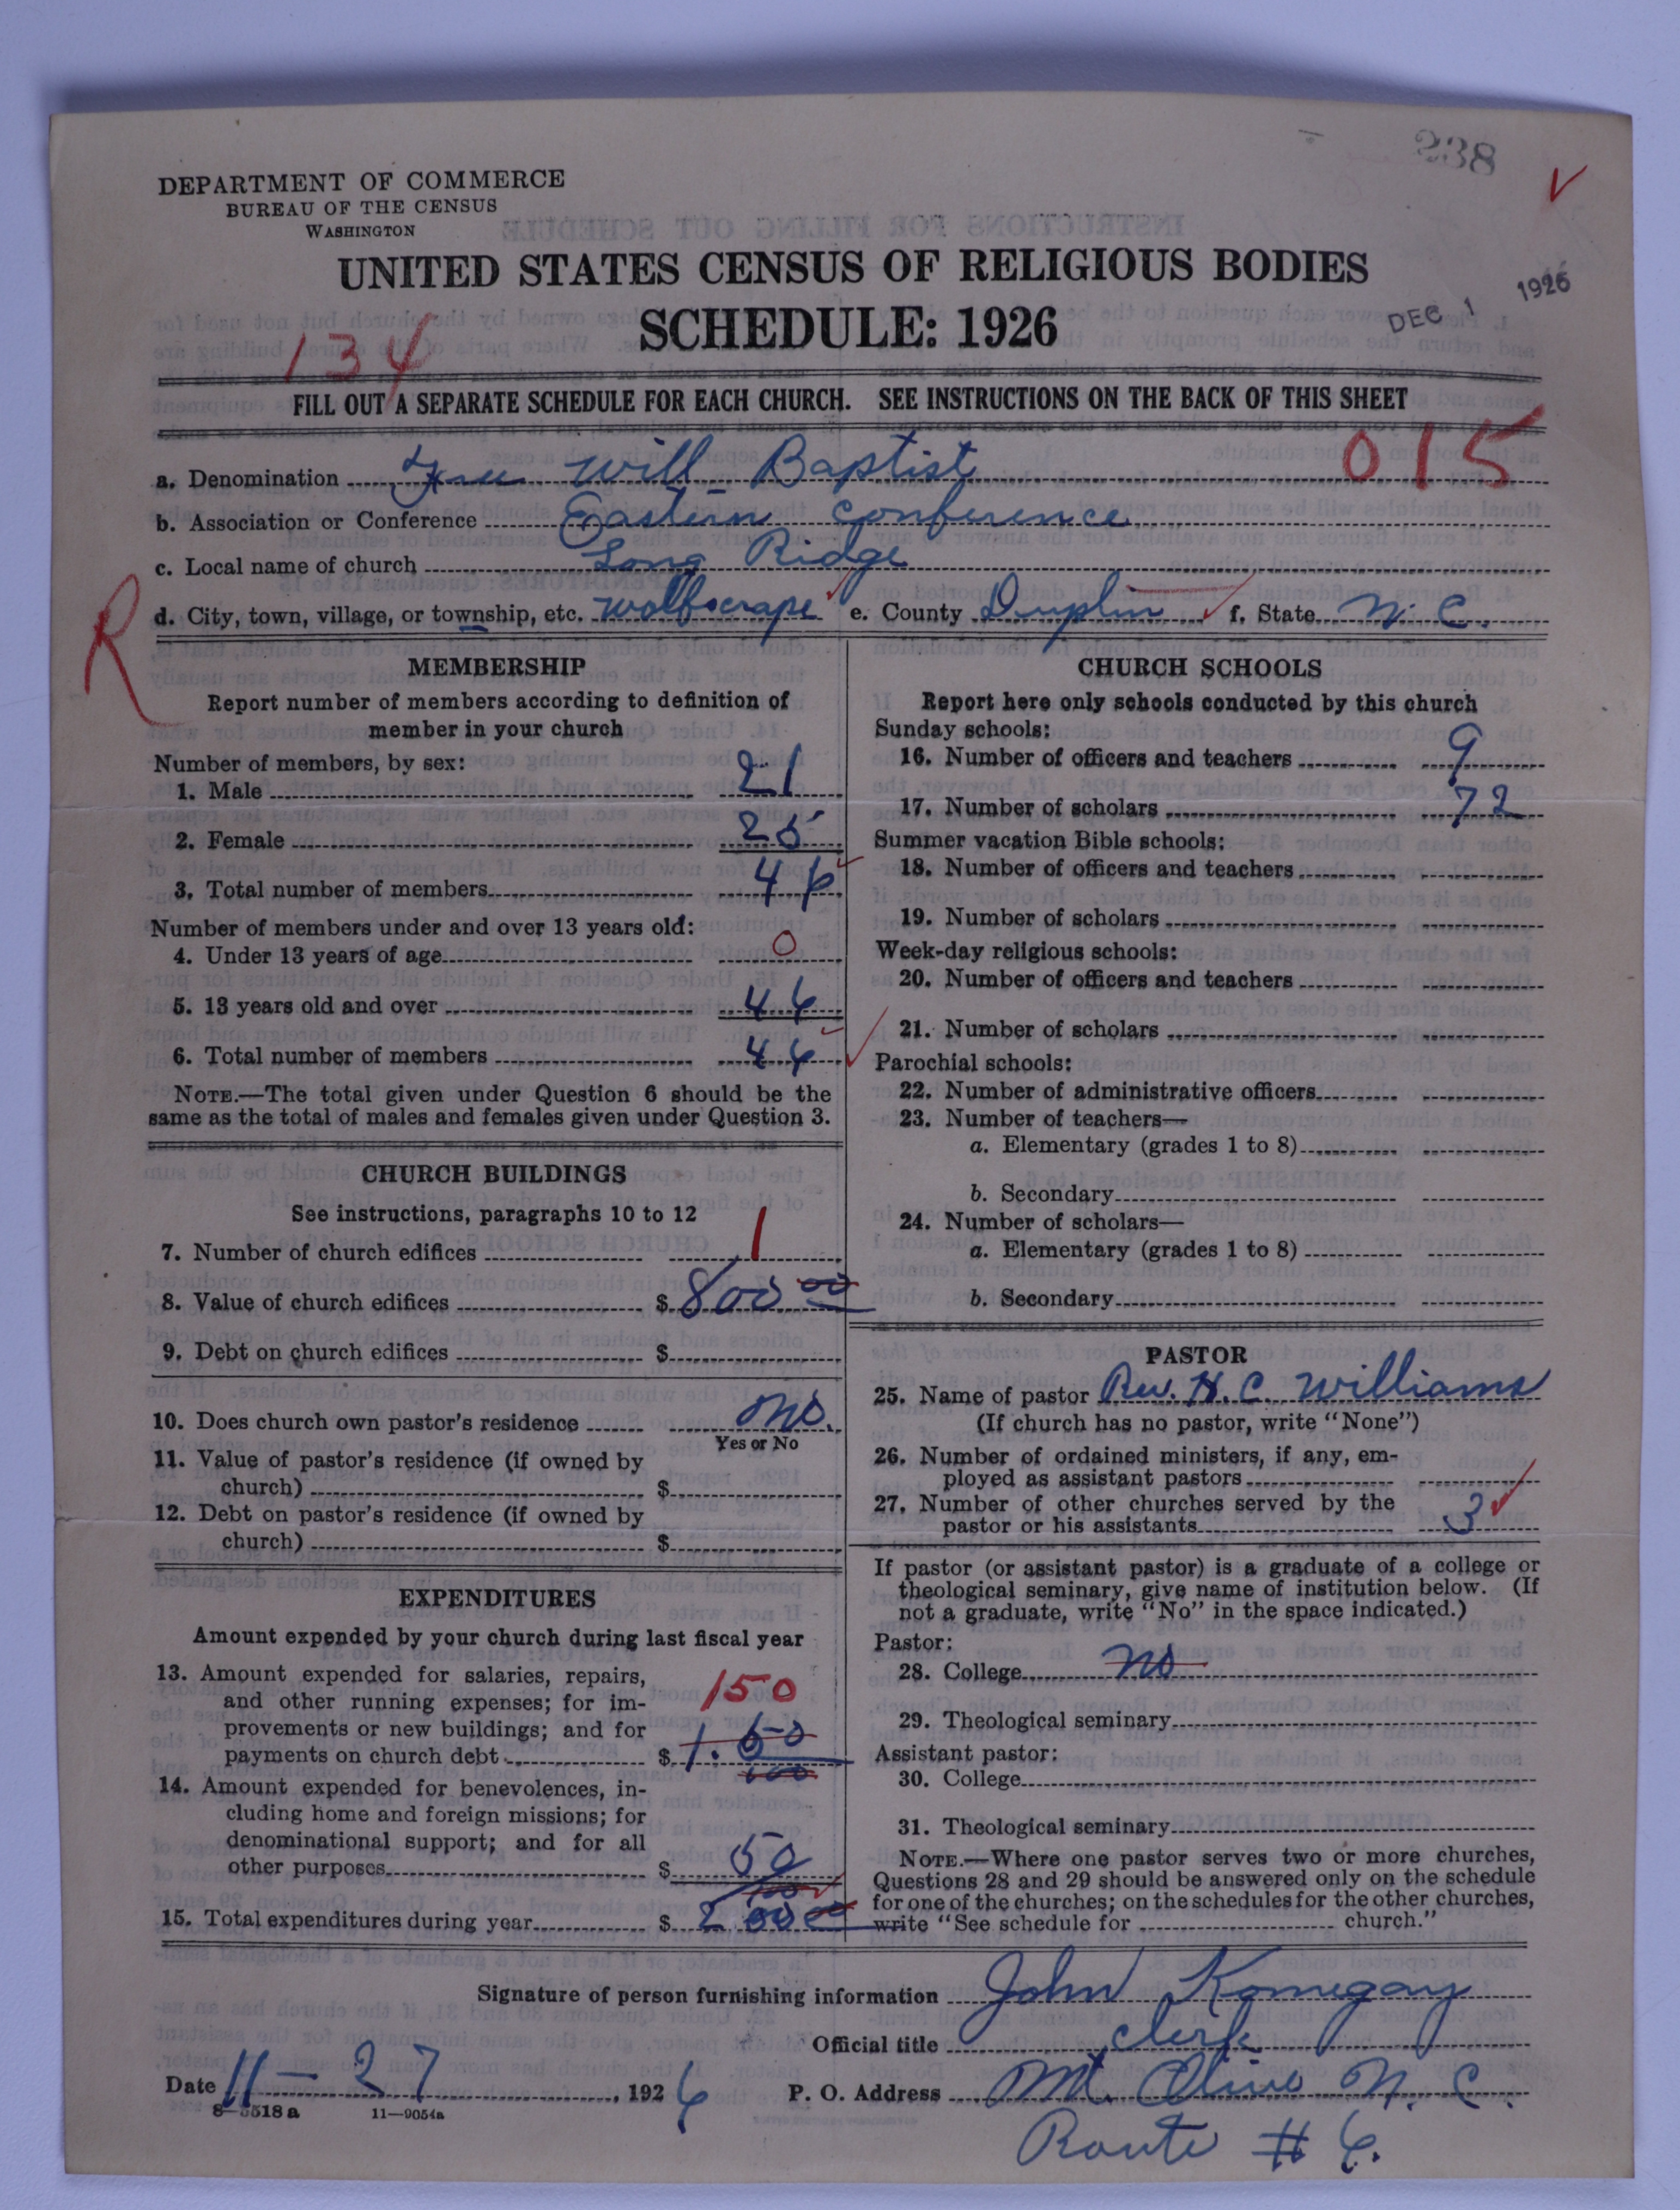 238
DEPARTMENT OF COMMERCE
BUREAU OF THE CENSUS
WASHINGTON
UNITED STATES CENSUS OF RELIGIOUS BODIES
SCHEDULE: 1926
DEC 1 1926
134
FILL OUT A SEPARATE SCHEDULE FOR EACH CHURCH. SEE INSTRUCTIONS ON THE BACK OF THIS SHEET
015
a. Denomination Free Will Baptist
b. Association or Conference Eastern Conference
c. Local name of church Long Ridge
d. City, town, village, or township, etc. Wolfscrape e. County Duplin f. State N. C.
R
MEMBERSHIP
Report number of members according to definition of
member in your church
Number of members, by sex:
1. Male 21
2. Female 25
3. Total number of members 46
Number of members under and over 13 years old:
4. Under 13 years of age 0
5. 13 years old and over 46
6. Total number of members 46
NOTE.—The total given under Question 6 should be the
same as the total of males and females given under Question 3.
CHURCH BUILDINGS
See instructions, paragraphs 10 to 12
7. Number of church edifices 1
8. Value of church edifices $ 800 00
9. Debt on church edifices $
10. Does church own pastor's residence no.
Yes or No
11. Value of pastor's residence (if owned by
church) $
12. Debt on pastor's residence (if owned by
church) $
EXPENDITURES
Amount expended by your church during last fiscal year
13. Amount expended for salaries, repairs,
and other running expenses; for im-
provements or new buildings; and for
payments on church debt $ 1.50
150
14. Amount expended for benevolences, in-
cluding home and foreign missions; for
denominational support; and for all
other purposes $ 50
15. Total expenditures during year $ 200 00
CHURCH SCHOOLS
Report here only schools conducted by this church
Sunday schools:
16. Number of officers and teachers 9
17. Number of scholars 72
Summer vacation Bible schools:
18. Number of officers and teachers
19. Number of scholars
Week-day religious schools:
20. Number of officers and teachers
21. Number of scholars
Parochial schools:
22. Number of administrative officers
23. Number of teachers—
a. Elementary (grades 1 to 8)
b. Secondary
24. Number of scholars—
a. Elementary (grades 1 to 8)
b. Secondary
PASTOR
25. Name of pastor Rev. H. C. Williams
(If church has no pastor, write "None")
26. Number of ordained ministers, if any, em-
ployed as assistant pastors
27. Number of other churches served by the
pastor or his assistants 3
If pastor (or assistant pastor) is a graduate of a college or
theological seminary, give name of institution below. (If
not a graduate, write "No" in the space indicated.)
Pastor:
28. College no
29. Theological seminary
Assistant pastor:
30. College
31. Theological seminary
NOTE.—Where one pastor serves two or more churches,
Questions 28 and 29 should be answered only on the schedule
for one of the churches; on the schedules for the other churches,
write "See schedule for church."
Signature of person furnishing information John Kornegay
Official title clerk
Date 11-27, 1926 P. O. Address Mt. Olive N. C.
Route # 6.
8-5518 a 11-9054a